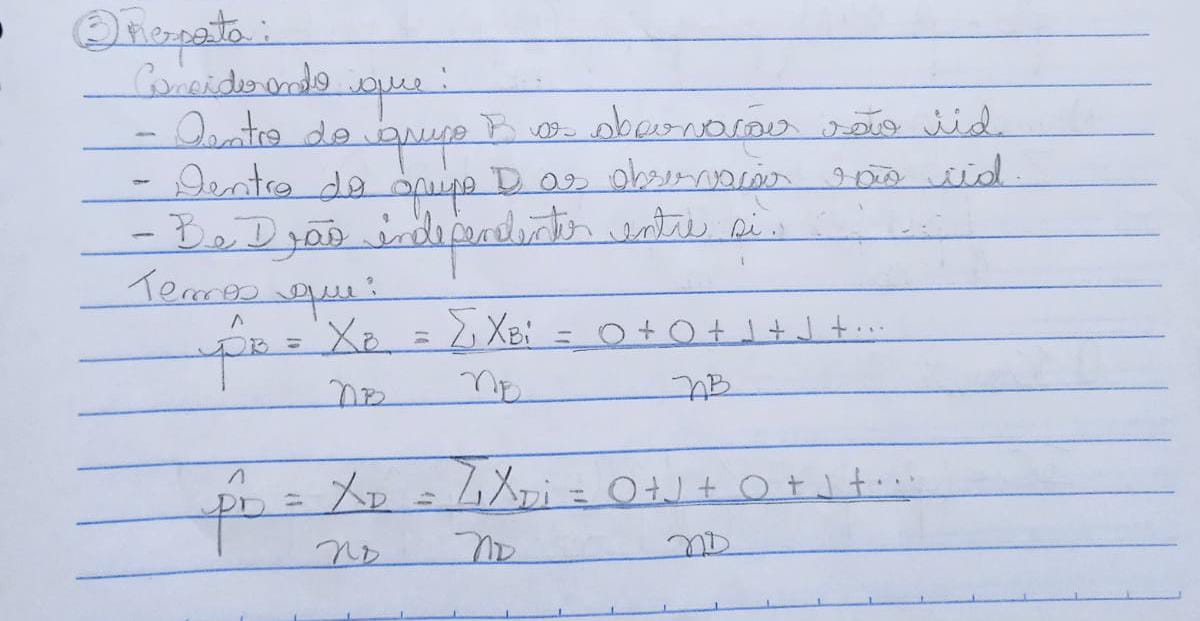 ③ Resposta:
Considerando que:
- Dentro do grupo B as observações são iid.
- Dentro do grupo D as observações são iid.
- B e D são independentes entre si.
Temos que:
p̂B = XB = ΣXBi = 0 + 0 + 1 + 1 + ...
nB nB nB
p̂D = XD = ΣXDi = 0 + 1 + 0 + 1 + ...
nD nD nD